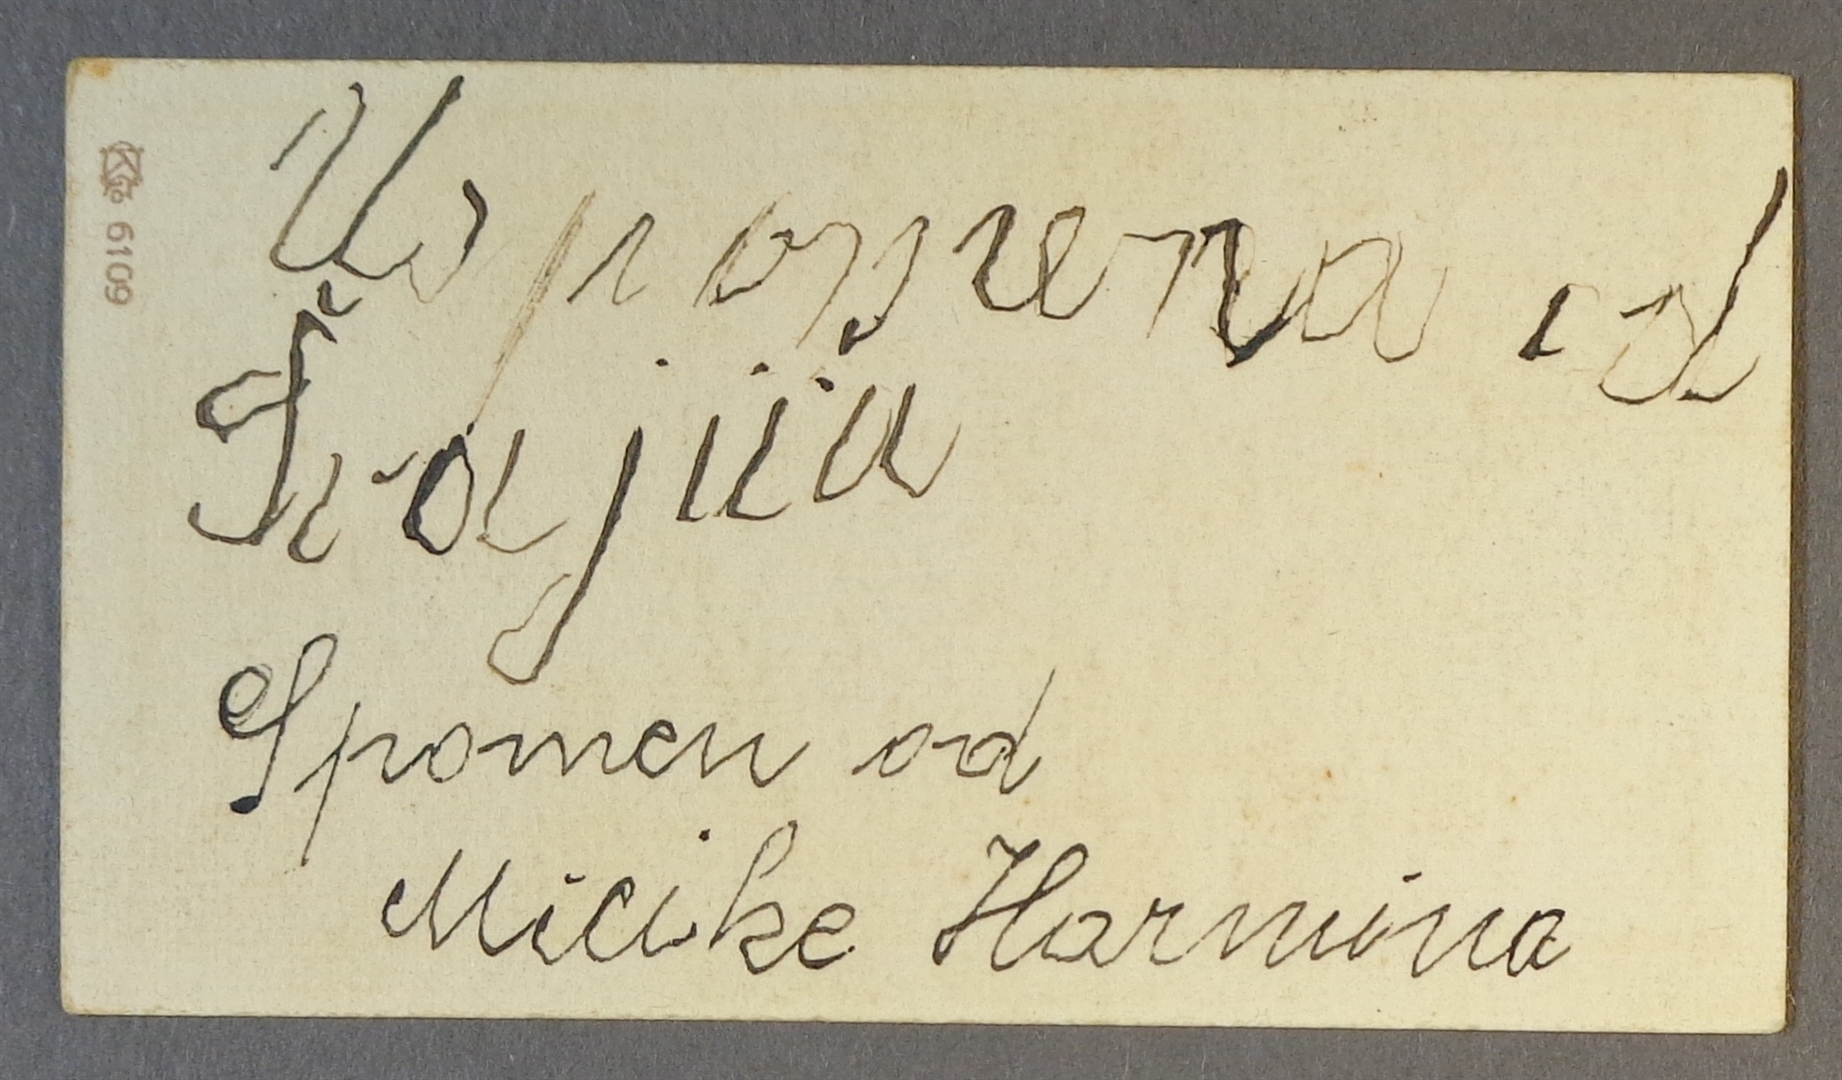 6109
Uspomena od
Spomen od
Micike Harmina